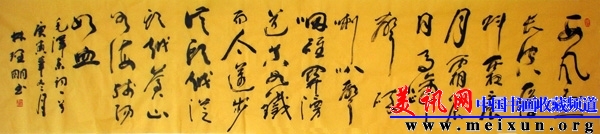 西风烈
长空雁
叫霜晨
月霜晨
月马蹄
声碎
喇叭声
咽雄关漫
道真如铁
而今迈步
从头越从
头越苍山
如海残阳
如血
毛泽东词一首
庚寅年冬月
林
书
美讯网 中国书画收藏频道
www.meixun.com